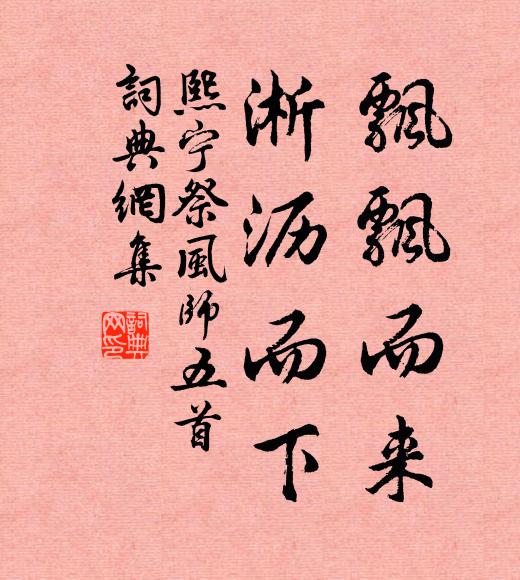 飘飘而来
淅沥而下
熙宁祭風師五首
詞典網集
詞典
网印